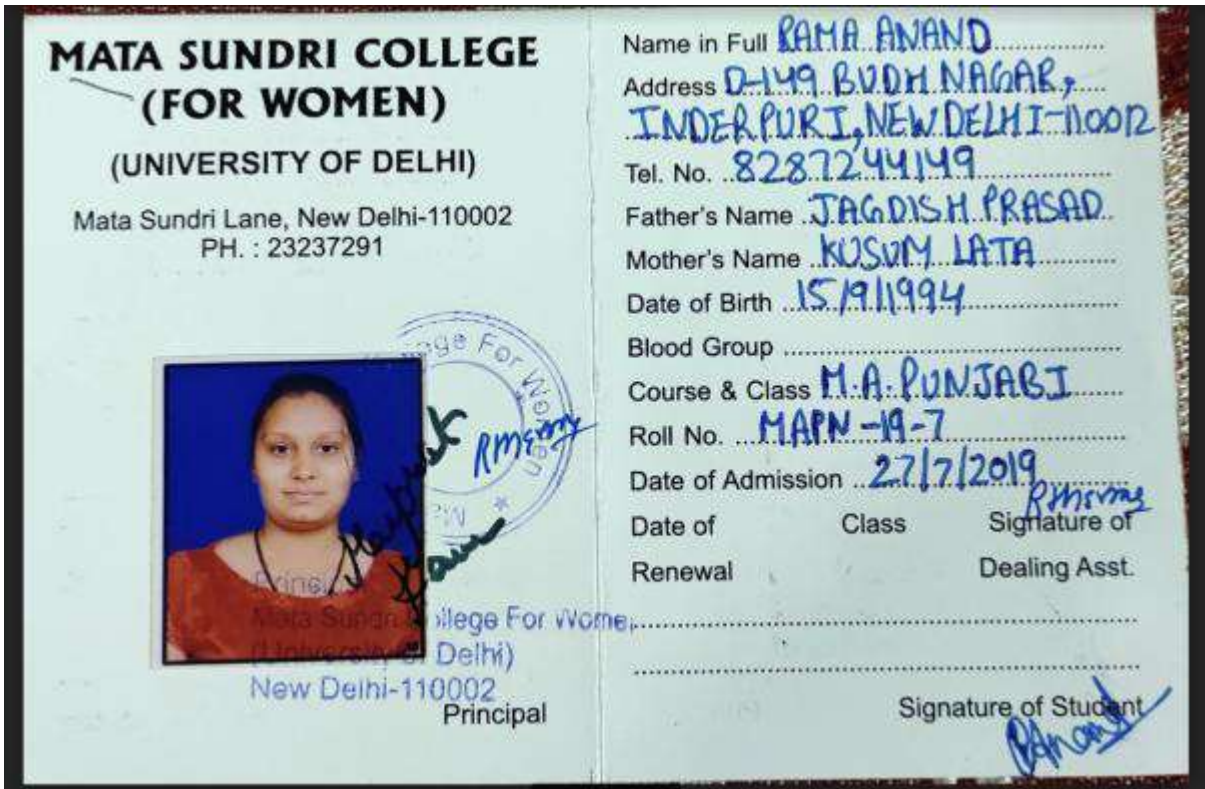 MATA SUNDRI COLLEGE
(FOR WOMEN)
(UNIVERSITY OF DELHI)
Mata Sundri Lane, New Delhi-110002
PH. : 23237291
ege For Women
Harpreet
Kaur
Princi
Mata Sundri College For Women
(University of Delhi)
New Delhi-110002
Principal
Name in Full RAMA ANAND
Address D-149 BUDH NAGAR,
INDERPURI, NEW DELHI-110012
Tel. No. 8287244149
Father's Name JAGDISH PRASAD
Mother's Name KUSUM LATA
Date of Birth 15/9/1994
Blood Group
Course & Class M.A. PUNJABI
Roll No. MAPN-19-7
Date of Admission 27/7/2019
Date of Class Signature of
Renewal Dealing Asst.
Signature of Student
RAnand